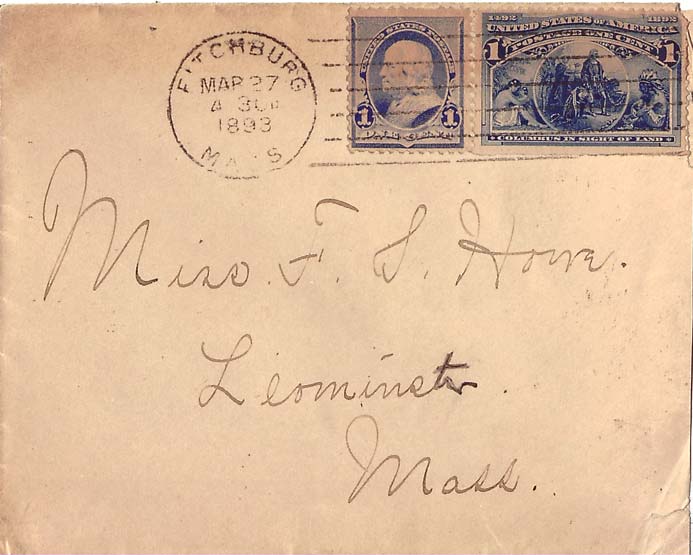 FITCHBURG
MAR 27
4 30P
1893
MASS
UNITED STATES POSTAGE
1 1
ONE CENT
1492 1892
UNITED STATES OF AMERICA
1 POSTAGE ONE CENT 1
COLUMBUS IN SIGHT OF LAND
Miss. F. S. Howe.
Leominster
Mass.